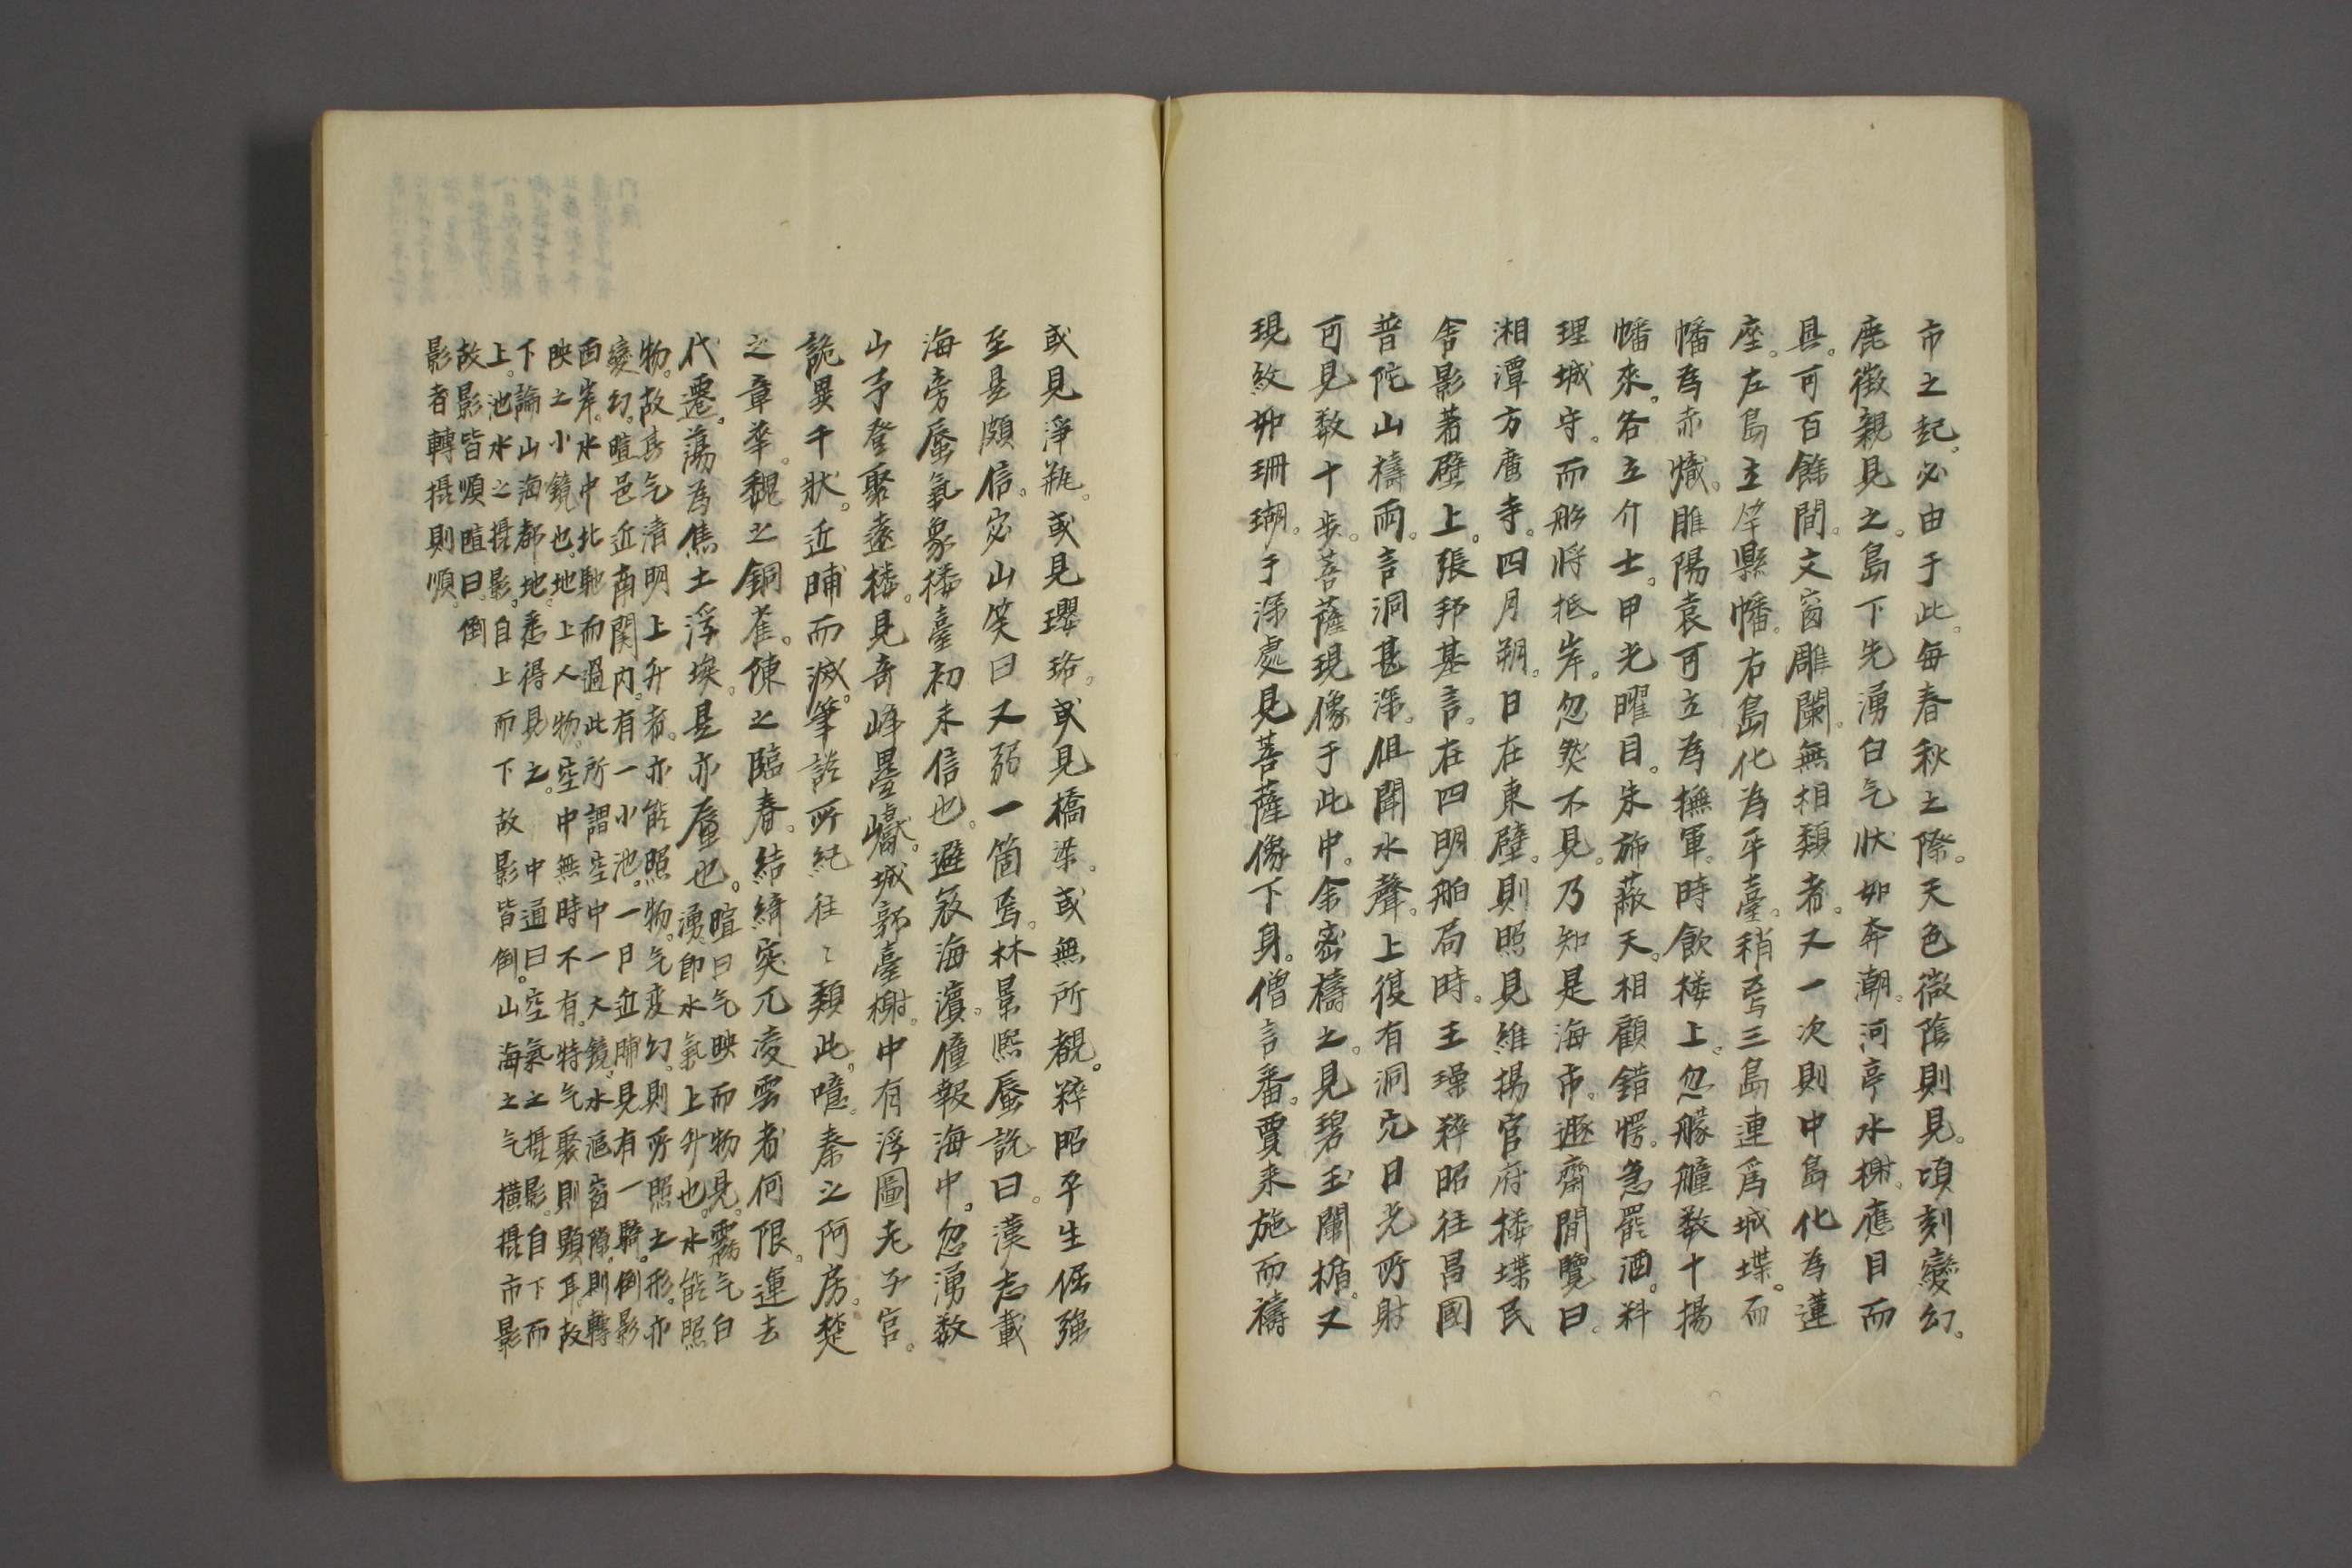 市之起。必由于此。每春秋之際。天色微陰則見。頃刻變幻。
鹿徵親見之。島下先湧白气狀如奔潮。河亭水榭。應目而
具。可百餘間。文窗雕闌。無相類者。又一次則中島化為蓮
座。左島立竿縣幡。右島化為平臺。稍焉三島連爲城堞。而
幡為赤幟。睢陽袁可立為撫軍。時飲楼上。忽艨艟数十揚
幡來。各立介士。甲光曜目。朱旆蔽天。相顧錯愕。急罷酒。料
理城守。而船将抵岸。忽然不見。乃知是海市。遯齋閒覽曰。
湘潭方廣寺。四月朔。日在東壁。則照見維揚官府楼堞民
舍影著壁上。張邦基言。在四明舶局時。王璪粹昭往昌國
普陀山禱雨。言洞甚深。但聞水聲。上復有洞穴日光所射
可見数十步。菩薩現像于此中。余密禱之。見碧玉闌楯。又
現紋如珊瑚。于深處見菩薩像下身。僧言番。賈来施而禱
或見淨瓶。或見瓔珞。或見橋梁。或無所覩。粹昭平生倔強
至是頗信。宓山笑曰又弱一箇焉。林景熙蜃説曰。漢志載
海旁蜃氣象楼臺初未信也。避寇海濵。僮報海中。忽湧数
山予登聚遠楼。見奇峰疊巘。城郭臺榭。中有浮圖老子宫。
詭異千狀。近晡而滅。筆談所紀往〻類此。噫。秦之阿房。楚
之章華。魏之銅雀。陳之臨春。結綺突兀凌雲者何限。運去
代遷。蕩為焦土浮埃。是亦蜃也。
暄曰气映而物見。霧气白
湧即水氣上升也。水能照
物。故其气清明上升者。亦能照物。气変幻。則所照之形。亦
變幻。暄邑近南闗内。有一小池。一日近晡見有一驂。倒影
西岸。水中北馳而過此所謂空中一大鏡。水漚窗隙。則轉
映之小鏡也。地上人物。空中無時不有。特气聚則顯耳。故
下論山海都地。悉得見之。
中通曰。空氣之摂影。自下而
上。池水之摂影。自上而下故影皆倒。山海之气横摂市影
故影皆順暄曰。倒
影者轉摂則順。